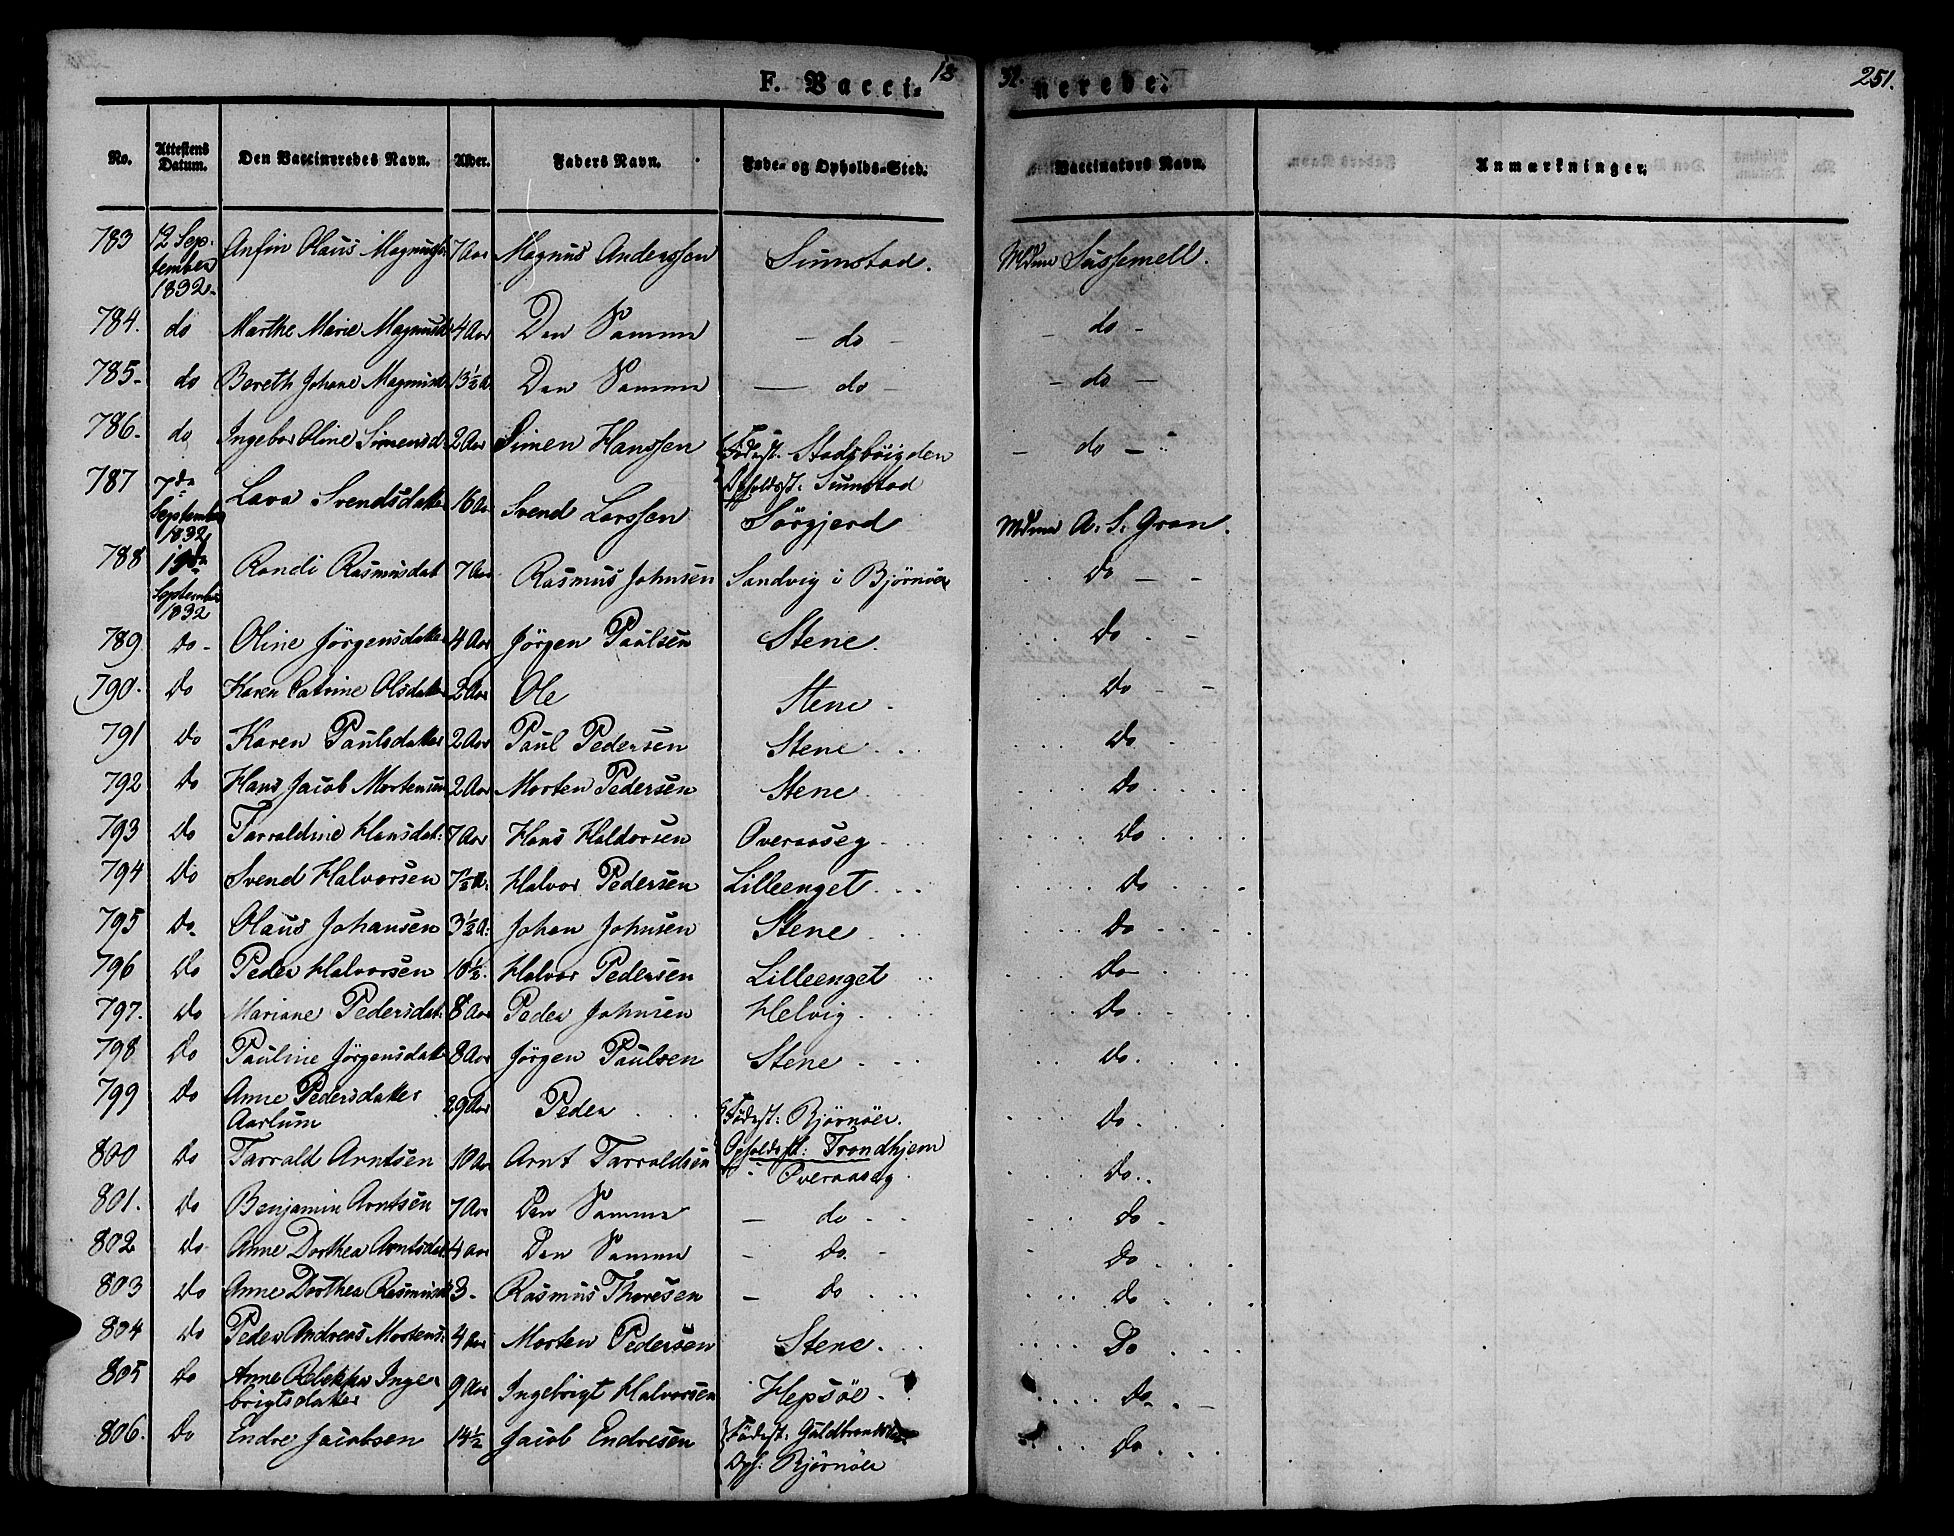 F. Vacci- 18
32. nerede. 251.
No. Attestens Datum. Den Vaccineredes Navn. Alder. Faders Navn. Føde- og Opholds-Sted. Vaccinators Navn. Anmærkninger.
783 12 September 1832. Anfin Olaus Magnuss: 7 Aar Magnus Anderssen Sumstad. Mdme Sussemell.
784. do Marthe Marie Magnusd: 4 Aar Den Samme - do - - do -
785. do Bereth Johane Magnusd 13½ A Den Samme - do - - do -
786. do Ingebor Oline Simensd 2 Aar Simen Hanssen Födest. Stadsböigden - do -
Opholdsst: Sumstad
787 7de September 1832 Lava Svendsdatter 16 Aa Svend Larssen Sörgjerd Mdme A. S. Gran.
788 19de September 1832 Randi Rasmusdat 7 Aar Rasmus Johnsen Sandvig i Bjørnøer Do - -
789. Do- Oline Jörgensdatter 4 Aar Jörgen Paulsen Stene. Do. -
790. Do Karen Catrine Olsdatter 2 Aar Ole Stene. Do - -
791 Do Karen Paulsdatter 2 Aar Paul Pedersen Stene Do. -
792 Do Hans Jacob Mortensen 2 Aar Morten Pedersen Stene Do
793 Do Tarraldine Hansdat: 7 Aar Hans Haldorsen Overaaseg Do
794 Do Svend Halvorsen 7½ A: Halvor Pedersen Lilleenget Do
795 Do. Olaus Johansen 3½ A: Johan Johnsen Stene Do
796 Do Peder Halvorsen 10½. Halvor Pedersen Lilleenget Do
797. Do Mariane Pedersdat: 8 Aar Peder Johnsen Helvig Do.
798 Do Pauline Jörgensdatt 8 Aar Jörgen Paulsen Stene Do.
799 Do Anne Pedersdatter Aarlum 29 Aar Peder Födest: Bjørnöer. Do.
Opholdsst: Trondhjem
800 Do Tarrald Arntsen 10 Aar Arnt Tarraldsen Overaaseg Do.
801. Do Benjamin Arntsen 7 Aar Den Samme - do - Do -
802 Do Anne Dorthea Arntsdat 4 Aar Den Samme - Do. - Do
803 Do Anne Dorthea Rasmusd 3 - Rasmus Thoresen - Do Do
804 Do Peder Andreas Mortens: 4 Aar Morten Pedersen Stene. Do
805 Do Anne Rebekka Ingebrigtsdatter 9 Aar Ingebrigt Halvorsen Hepsöe. Do. -
806. Do Endre Jacobsen 14½ Jacob Endresen Födest: Guldbrandsd Do
Oph: Bjørnöer